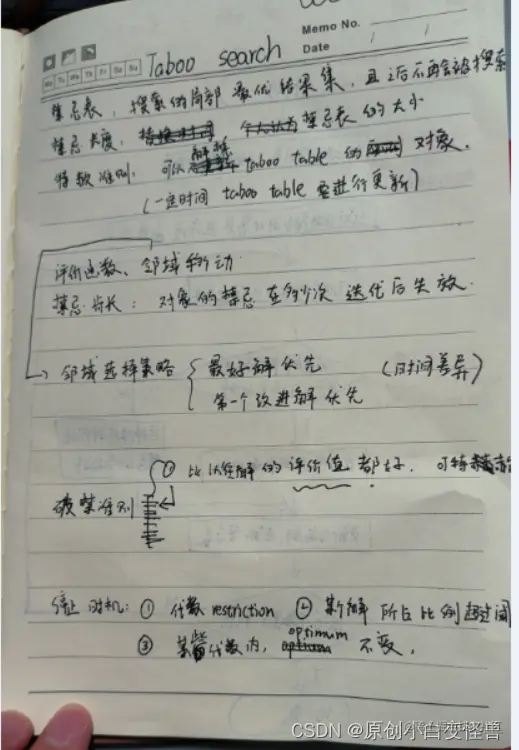 Memo No.
Mo Tu We Th Fr Sa Su
Date / /
Taboo search
禁忌表：搜索的局部最优结果集，且之后不再会被搜索
禁忌长度：禁忌表的大小
特赦准则：可以解禁 taboo table 的对象.
(一定时间 taboo table 要进行更新)
评价函数、邻域移动
禁忌步长：对象的禁忌在多少次迭代后失效.
邻域选择策略 最好解优先 (时间差异)
第一个改进解优先
① 比 解的评价值都好. 可特赦
破禁准则
停止时机：① 代数 restriction ② 某个解所占比例超过阈
③ 某些代数内, optimum 不变.
CSDN @原创小白变怪兽